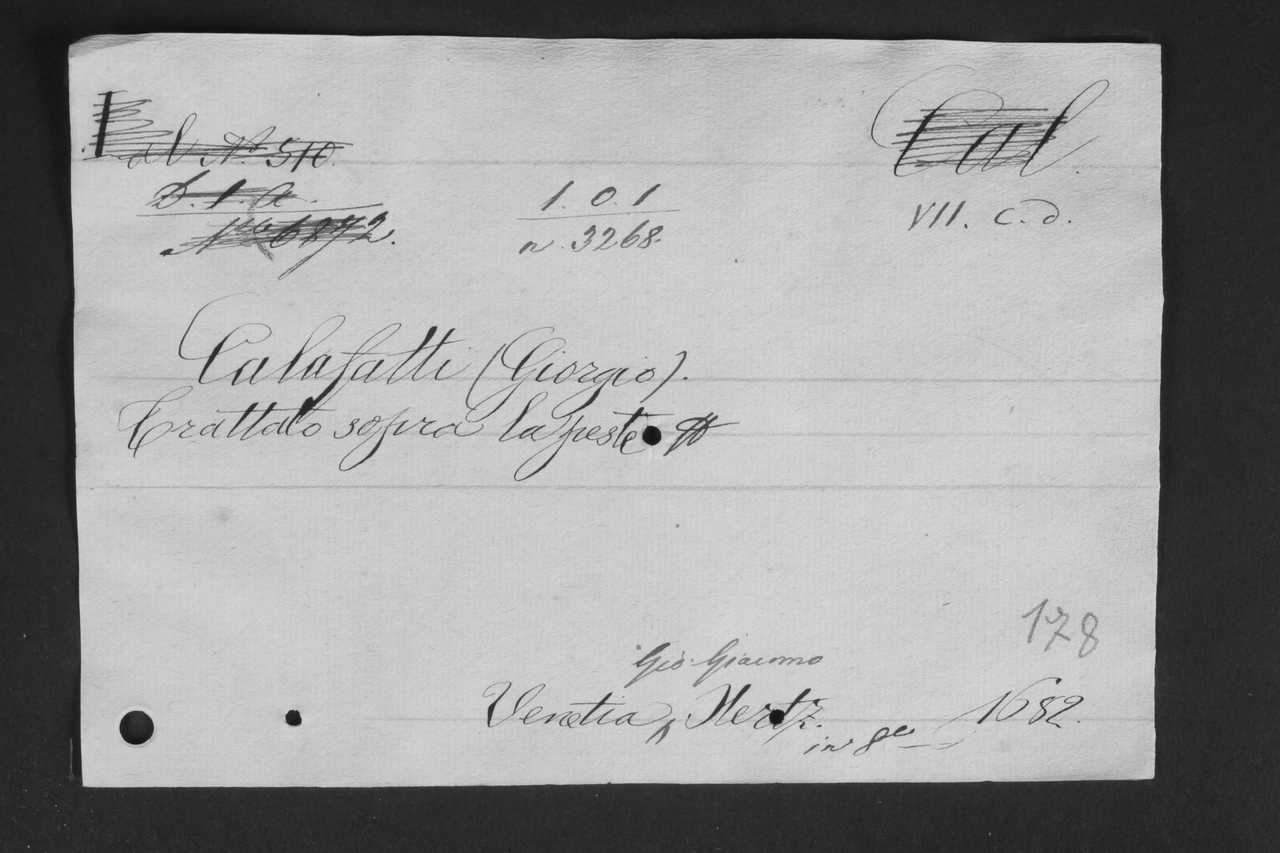 al No. 510.
D. 1. a.
No. 6872.
1. 0. 1
n. 3268.
Cal.
VII. c. d.
Calafatti (Giorgio).
Trattato sopra la peste
178
Gio. Giacomo
Venetia, Hertz. 1682.
in 8º